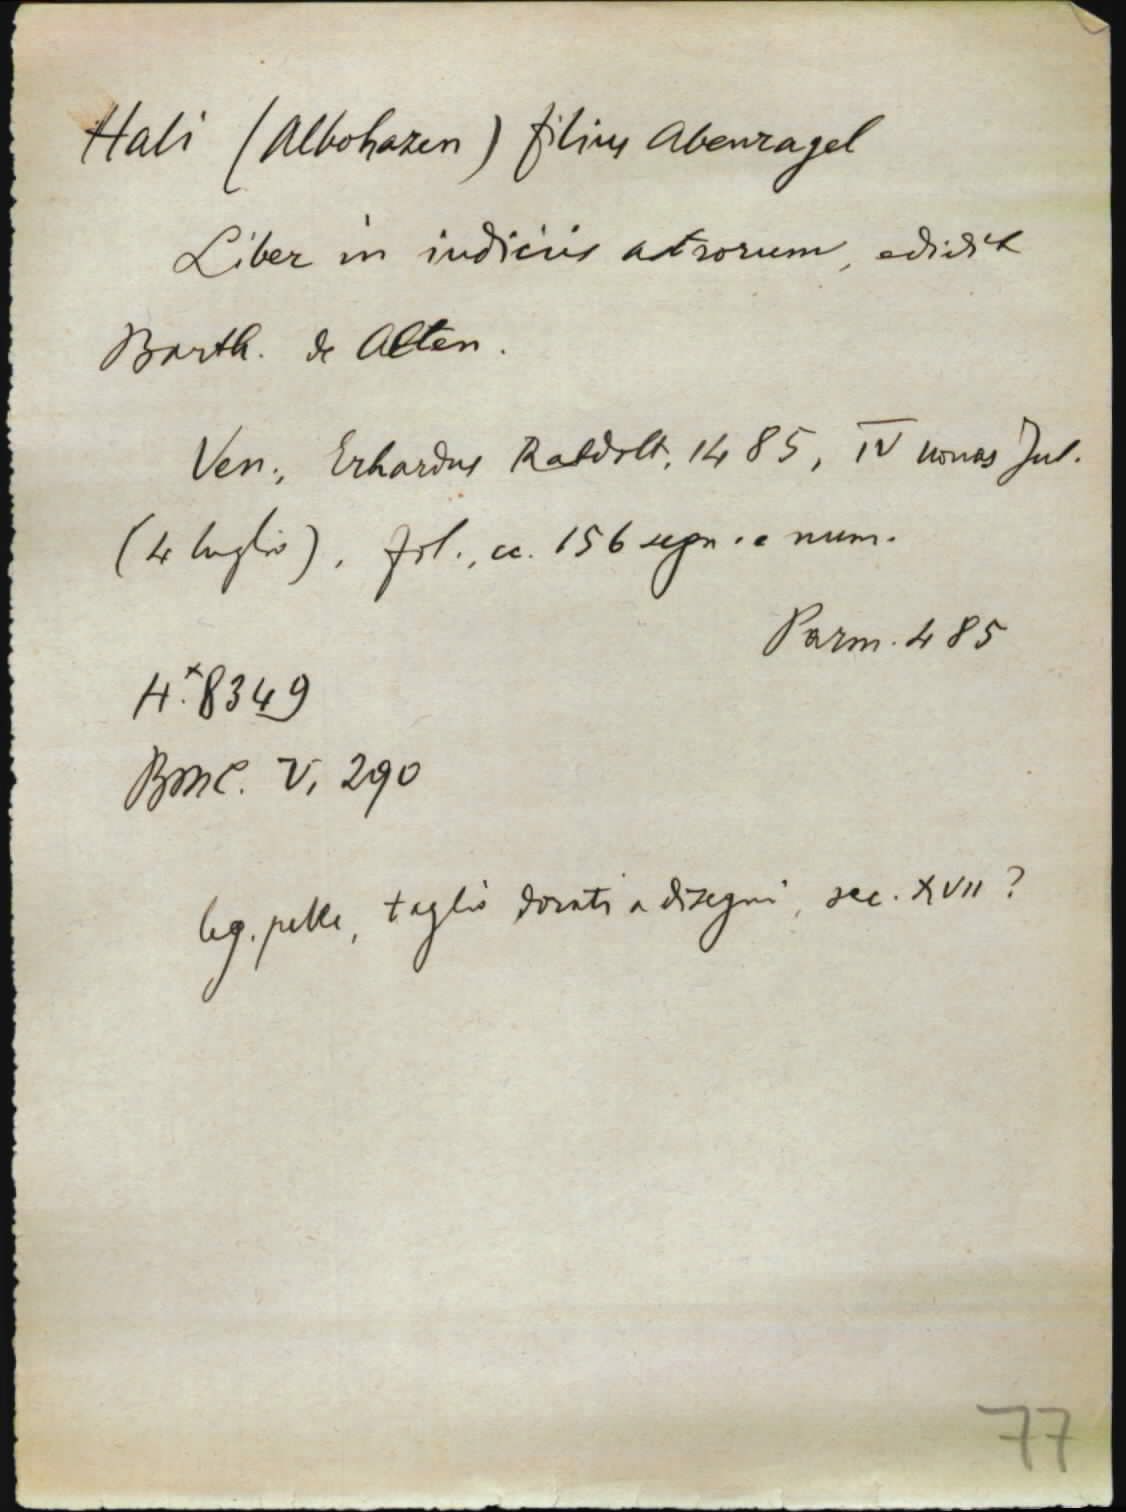 Hali (Albohazen) filius Abenragel
Liber in iudiciis astrorum, edidit
Barth. de Alten.
Ven., Erhardus Ratdolt, 1485, IV nonas Jul.
(4 luglio), fol., cc. 156 segn. e num.
Parm. 485
H.x 8349
BMC. V, 290
leg. pelle, taglio dorati a disegni, sec. XVII ?
77